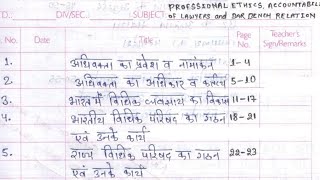 PROFESSIONAL ETHICS, ACCOUNTABIL
D.. DIV/SEC. SUBJECT of LAWYERS and BAR BENCH RELATION
No. Date Title Page No. Teacher's Sign/Remarks
1. अधिवक्ता का प्रवेश व नामांकन 1-4
2. अधिवक्ता का अधिकार व कर्तव्य 5-10
3. भारत में विधिक व्यवसाय का विकास 11-17
4. भारतीय विधिक परिषद का गठन 18-21
एवं उनके कार्य
5. राज्य विधिक परिषद का गठन 22-23
एवं उनके कार्य